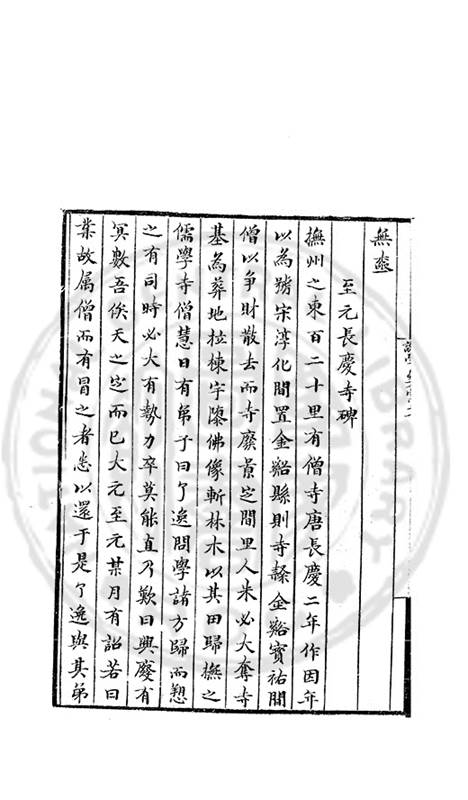 無壅
至元長慶寺碑
撫州之東百二十里有僧寺唐長慶二年作因年
以為號宋淳化間置金谿縣則寺隸金谿寶祐間
僧以爭財散去而寺廢景定間里人朱必大奪寺
基為葬地拉棟宇隳佛像斬林木以其田歸撫之
儒學寺僧慧日有弟子曰了逸問學諸方歸而愬
之有司時必大有勢力卒莫能直乃歎曰興廢有
冥數吾俟天之定而已大元至元某月有詔若曰
業故屬僧而有冒之者悉以還于是了逸與其弟